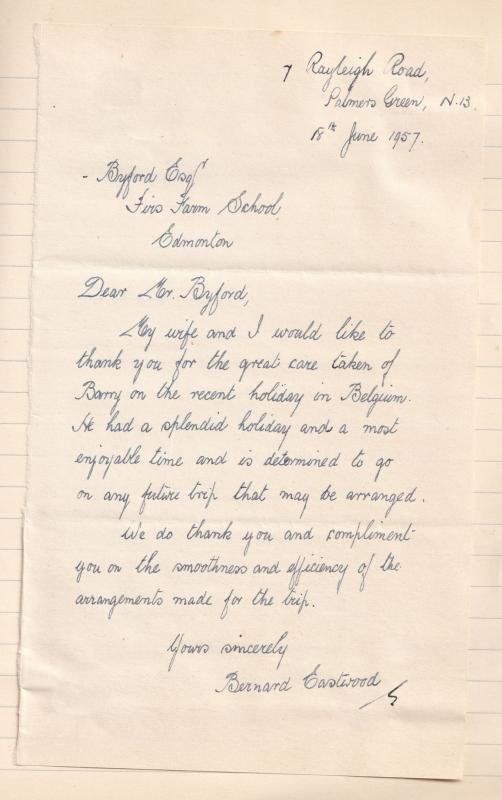 7 Rayleigh Road,
Palmers Green, N.13.
18th June 1957.
- Byford Esqr
Firs Farm School,
Edmonton
Dear Mr. Byford,
My wife and I would like to
thank you for the great care taken of
Barry on the recent holiday in Belgium.
He had a splendid holiday and a most
enjoyable time and is determined to go
on any future trip that may be arranged.
We do thank you and compliment
you on the smoothness and efficiency of the
arrangements made for the trip.
Yours sincerely
Bernard Eastwood